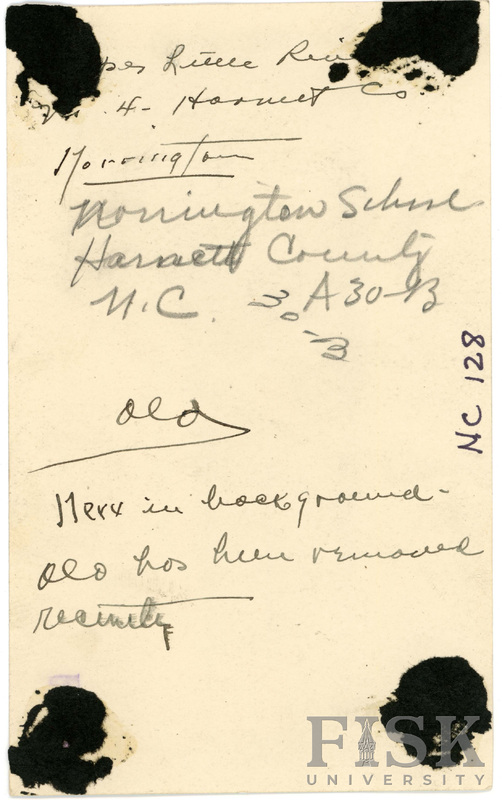 Little
4- Harnett Co
Norrington
Norrington School
Harnett County
N.C. A 30-B
30-B
NC 128
Old
New in background-
Old has been removed
recently
FISK
UNIVERSITY